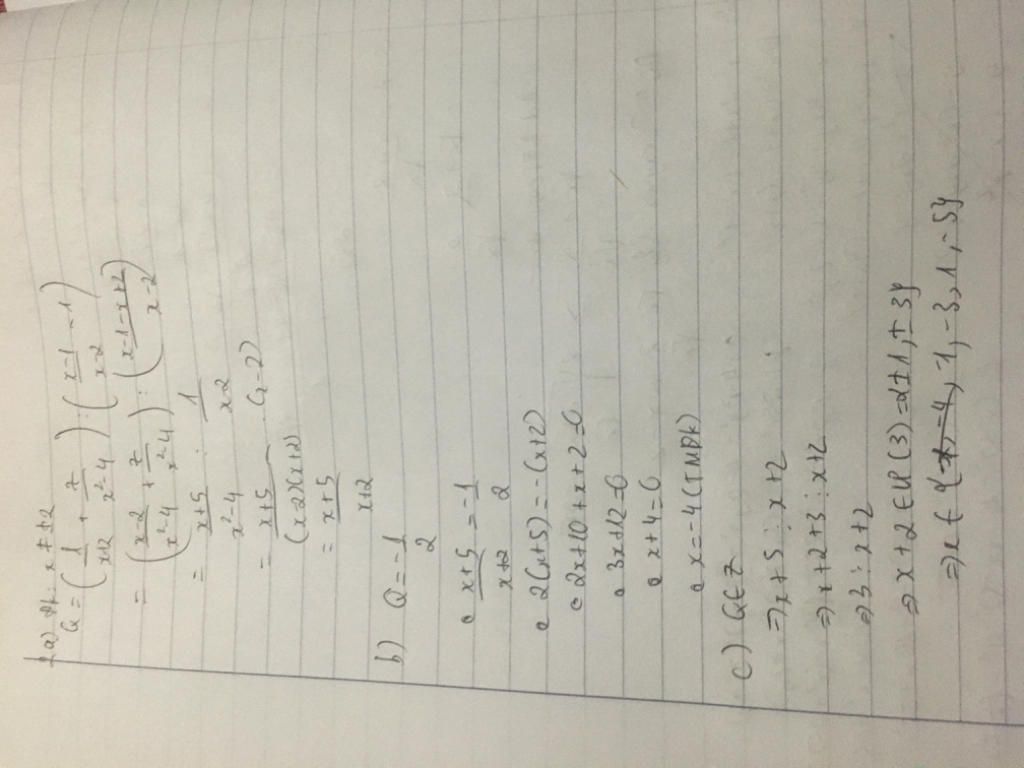 2a) đk: x ≠ ±2
Q = (1/x+2 + 7/x²-4) : (x-1/x-2 - 1)
= (x-2/x²-4 + 7/x²-4) : (x-1-x+2/x-2)
= x+5/x²-4 : 1/x-2
= x+5/(x-2)(x+2) (x-2)
= x+5/x+2
b) Q = -1/2
x+5/x+2 = -1/2
2(x+5) = -(x+2)
2x+10+x+2=0
3x+12=0
x+4=0
x=-4 (TMĐK)
c) Q∈Z
=> x+5 ⋮ x+2
=> x+2+3 ⋮ x+2
=> 3 ⋮ x+2
=> x+2 ∈ Ư(3) = {±1, ±3}
=> x ∈ { -1, -3, 1, -5}